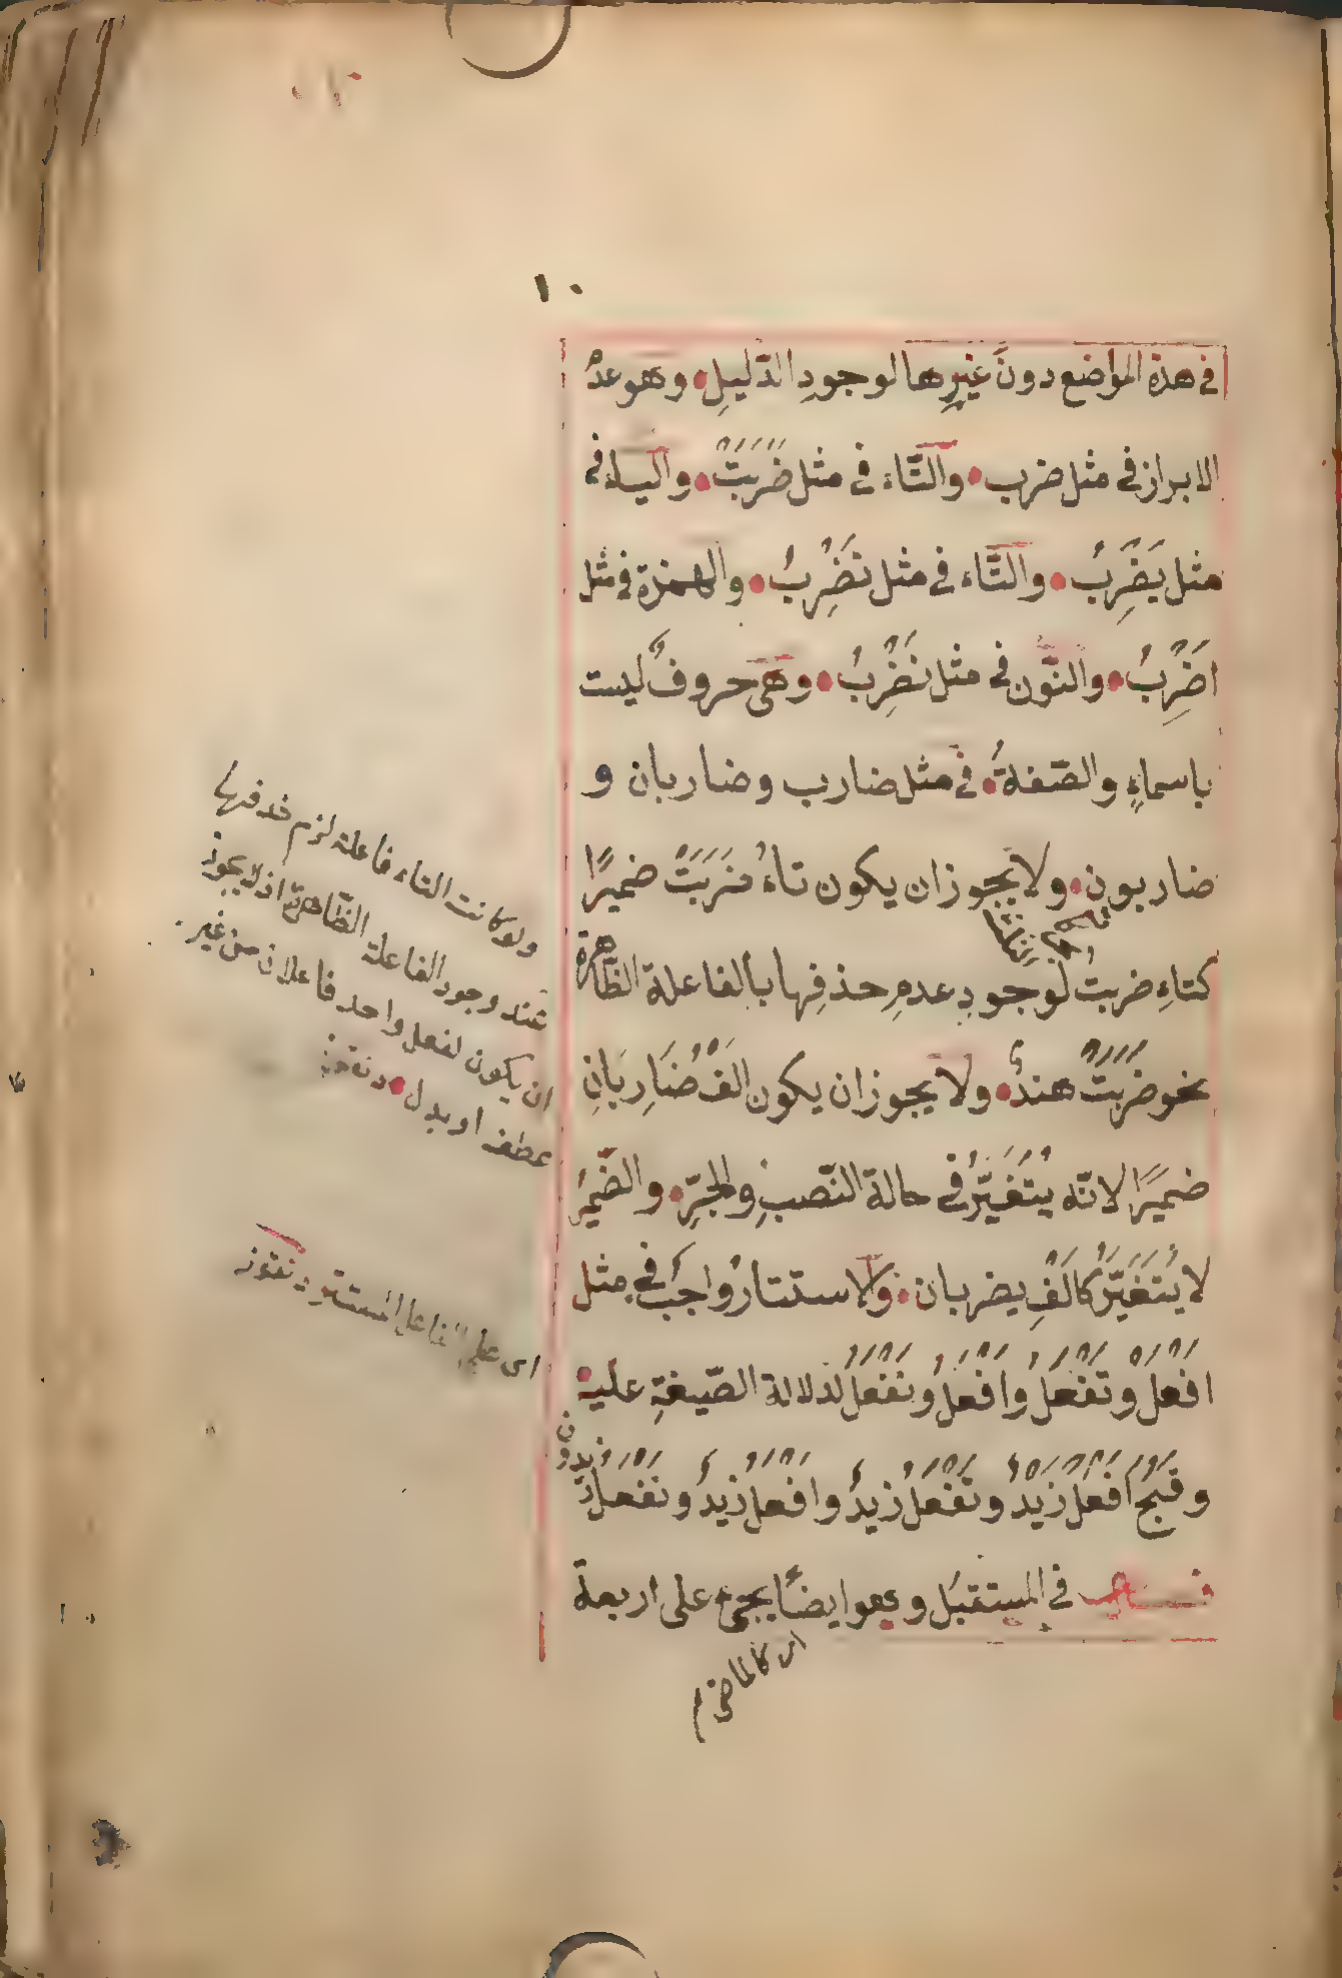 ١٠
في هذه المواضع دونَ غيرِها لوجودِ الدّليلِ وهو عدمُ
الابراز في مثل ضرب والتّاء في مثل ضَرَبَتْ والياء في
مثل يَضْرِبُ والتّاء في مثل تَضْرِبُ والهمزة في مثل
اَضْرِبُ والنّون في مثل نَضْرِبُ وهى حروفٌ ليست
باسماءٍ والصّفةُ في مثل ضارب وضاربان و
ضاربون ولا يجوز ان يكون تاءُ ضَرَبَتْ ضميرًا
كتاءِ ضربتُ لوجودِ عدمِ حذفِها بالفاعلة الظّاهرة
نحو ضَرَبَتْ هندٌ ولا يجوز ان يكون الفُ ضَارِبَانِ
ضميرًا لانّه يَتَغَيَّرُ في حالة النّصبِ والجرِّ والضّميرُ
لا يَتَغَيَّرُ كالفِ يضربان والاستتارُ واجبٌ في مثل
افْعَلْ وتَفْعَلُ وافْعَلُ ونَفْعَلُ لدلالة الصّيغةِ عليه
وقَبُحَ افْعَلْ زيدٌ وتَفْعَلُ زيدٌ وافْعَلُ زيدٌ ونَفْعَلُ زيدون
فصل في المستقبل وهو ايضًا يجئ على اربعة
اى كالماضى م
ولو كانت التاء فاعلة لزم حذفها
عند وجود الفاعلة الظّاهرة اذ لا يجوز
ان يكون لفعل واحد فاعلان من غير
عطف او بدل
اى على الفاعل المستتر